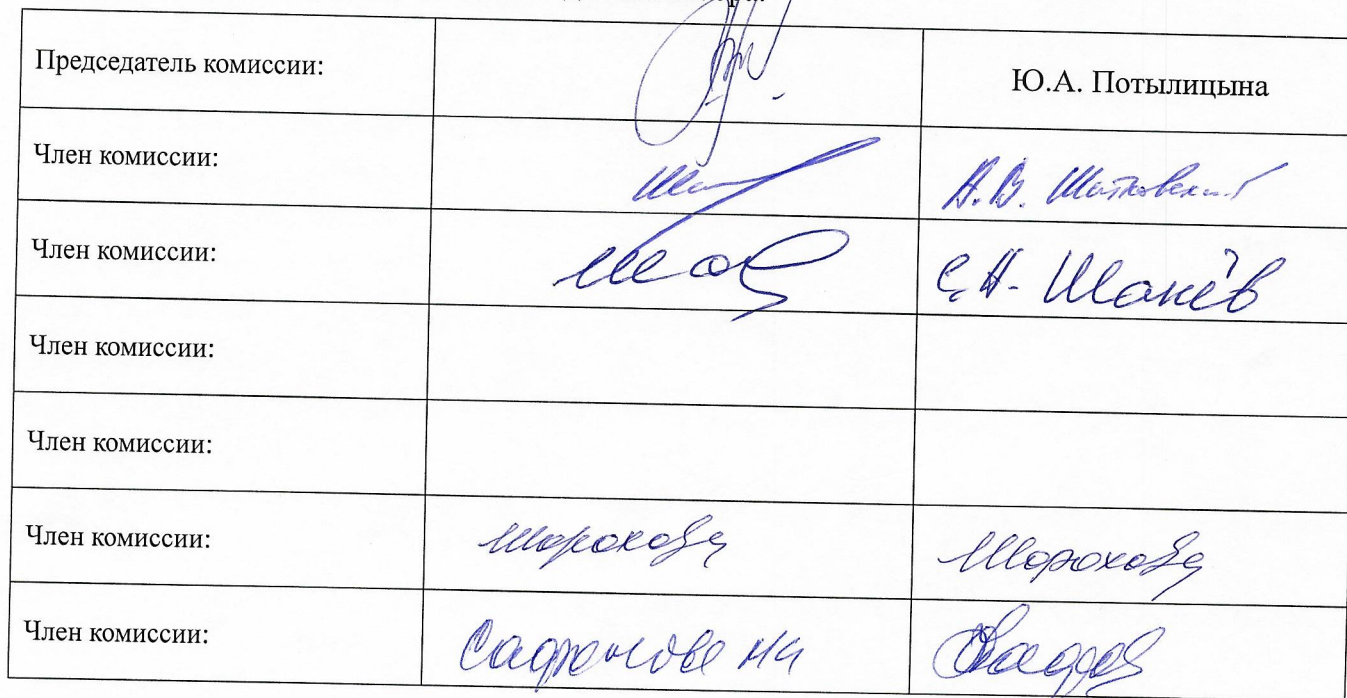 Председатель комиссии: Ю.А. Потылицына
Член комиссии: А.В. Шатковский
Член комиссии: С.А. Шанёв
Член комиссии:
Член комиссии:
Член комиссии: Шорохова Шорохова
Член комиссии: Сафронова НИ